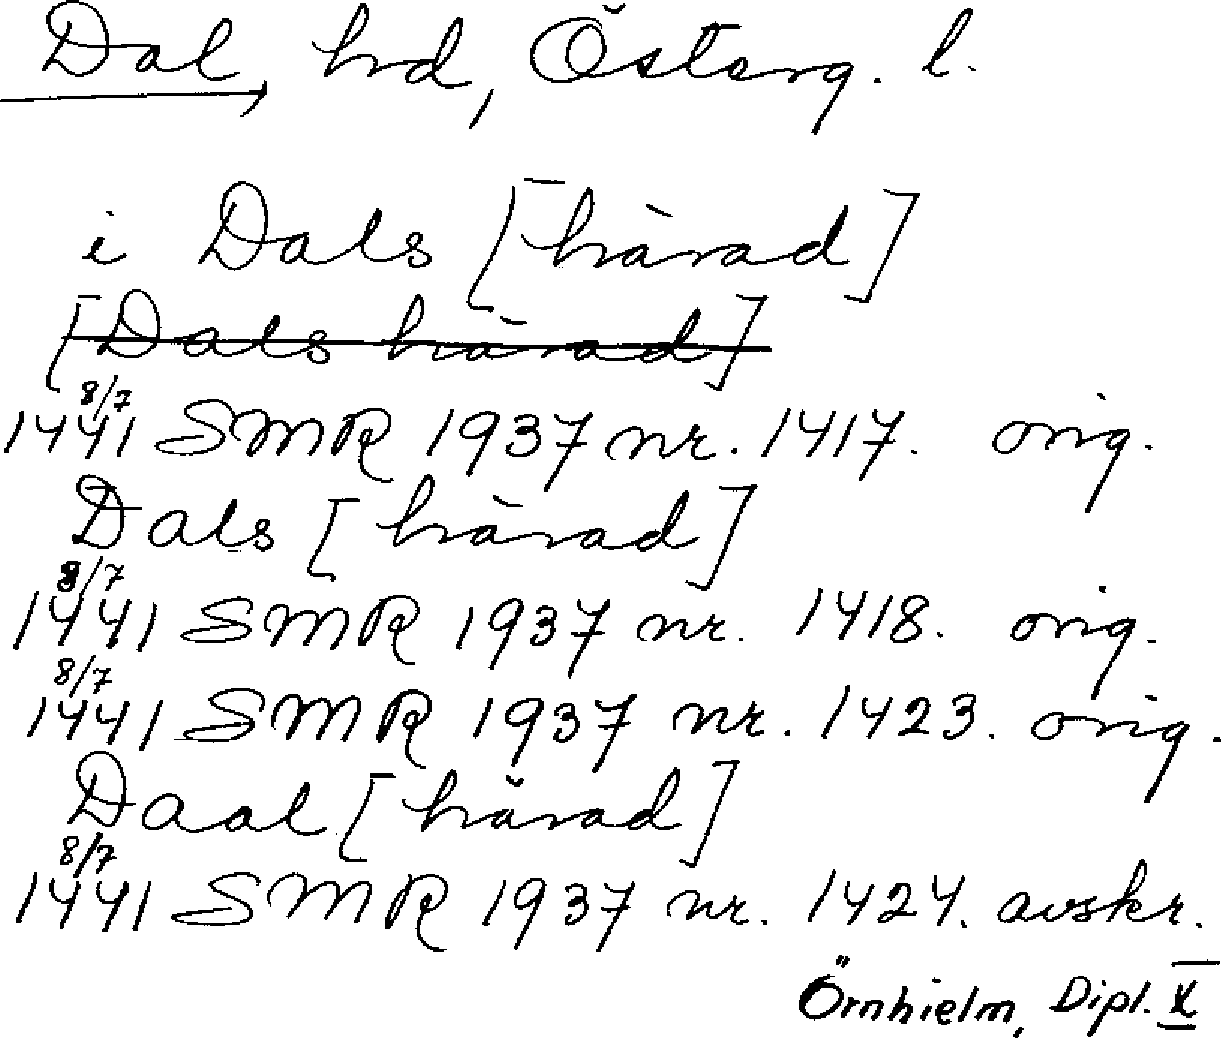 Dal, hrd, Österg. l.
i Dals [härad]
[Dals härad]
8/7
1441 SMR 1937 nr. 1417. orig.
Dals [härad]
8/7
1441 SMR 1937 nr. 1418. orig.
8/7
1441 SMR 1937 nr. 1423. orig.
Daal [härad]
8/7
1441 SMR 1937 nr. 1424. avskr.
Örnhielm, Dipl. X